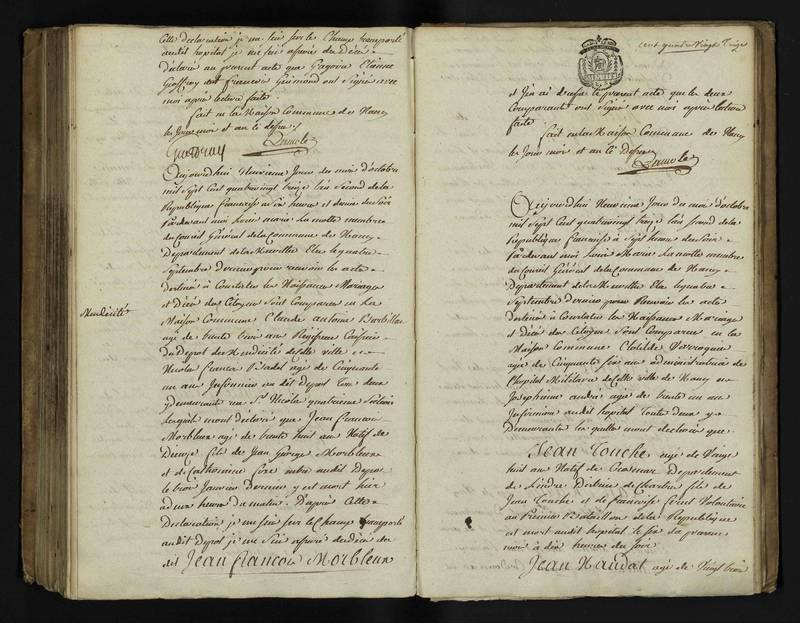 Cette declaration je me suis sur le Champ transporté
audit hopital je me suis assuré du Décès
déclaré au present acte que Etienne
ont Signé avec
moi après lecture faite
fait en la Maison Commune de Nancy
les Jour mois et an ci dessus
Lamotte
Aujourd'hui Neuvieme Jour du mois d'octobre
mil Sept cent quatrevingt treize l'an Second de la
Republique francaise à heures et demie du Soir
Pardevant moi Louis Marie Lamotte membre
du Conseil Général de la Commune de Nancy
Departement de la Meurthe Elu le quatre
Septembre dernier pour recevoir les actes
destinés à Constater les Naissances Mariages
et Décès des Citoyens Sont Comparus en la
Maison Commune Claude antoine
agé de trente trois ans
Mendicité
Du Depot de Mendicité de cette ville et
Nicolas francois agé de Cinquante
un ans Infirmier au dit Depot tous deux
demeurants rue St Nicolas quatrieme Section
lesquels m'ont déclaré que Jean francois
Morbleux agé de trente huit ans Natif de
Dieuze fils de Jean George Morbleux
et de Catherine entré audit Depot
le trois Janvier Dernier y est mort hier
à heures du matin. D'après cette
Declaration je me suis sur le Champ transporté
audit Depot je me suis assuré du décès du
dit Jean francois Morbleux
cent quatre vingt treize
et j'en ai dressé le present acte que les deux
Comparants ont Signé avec moi après lecture
faite
fait en la Maison Commune de Nancy
les Jour mois et an ci Dessus
Lamotte
Aujourd'hui Neuvieme Jour du mois d'octobre
mil Sept cent quatrevingt treize l'an Second de la
Republique francaise à Sept heures du Soir
Pardevant moi Louis Marie Lamotte membre
du Conseil Général de la Commune de Nancy
Departement de la Meurthe Elu le quatre
Septembre dernier pour Recevoir les actes
destinés à Constater les Naissances Mariages
et Décès des Citoyens Sont Comparus en la
Maison Commune Clotilde
agée de Cinquante ans administratrice de
l'hopital Militaire de cette ville de Nancy et
Josephine andré agée de trente un ans
Infirmiere audit hopital toutes deux y
Demeurantes lesquelles m'ont déclaré que
Jean Touche agé de Vingt
huit ans Natif de Departement
de L'indre District de fils de
Jean Touche et de francoise Volontaire
au Premier Bataillon de la Republique
est mort audit hopital le six du present
mois à dix heures du Soir
Jean Naudat agé de Vingt trois